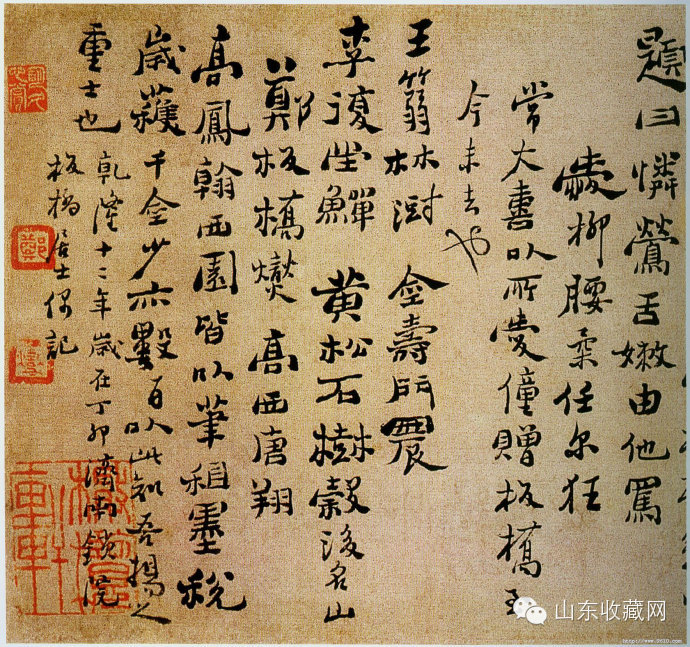 題曰憐鶯舌嫩由他罵
愛柳腰柔任尔狂
常大喜以所愛僮贈板橋至
今未去也
王篛林澍 金壽門農
李復堂鱓 黃松石樹榖後名山
鄭板橋燮 高西唐翔
高鳳翰西園皆以筆租墨稅
歲穫千金少亦數百以此知吾揚之
重士也
乾隆十二年歲在丁卯濟南鎖院
板橋居士偶記
鄭
燮
山东收藏网